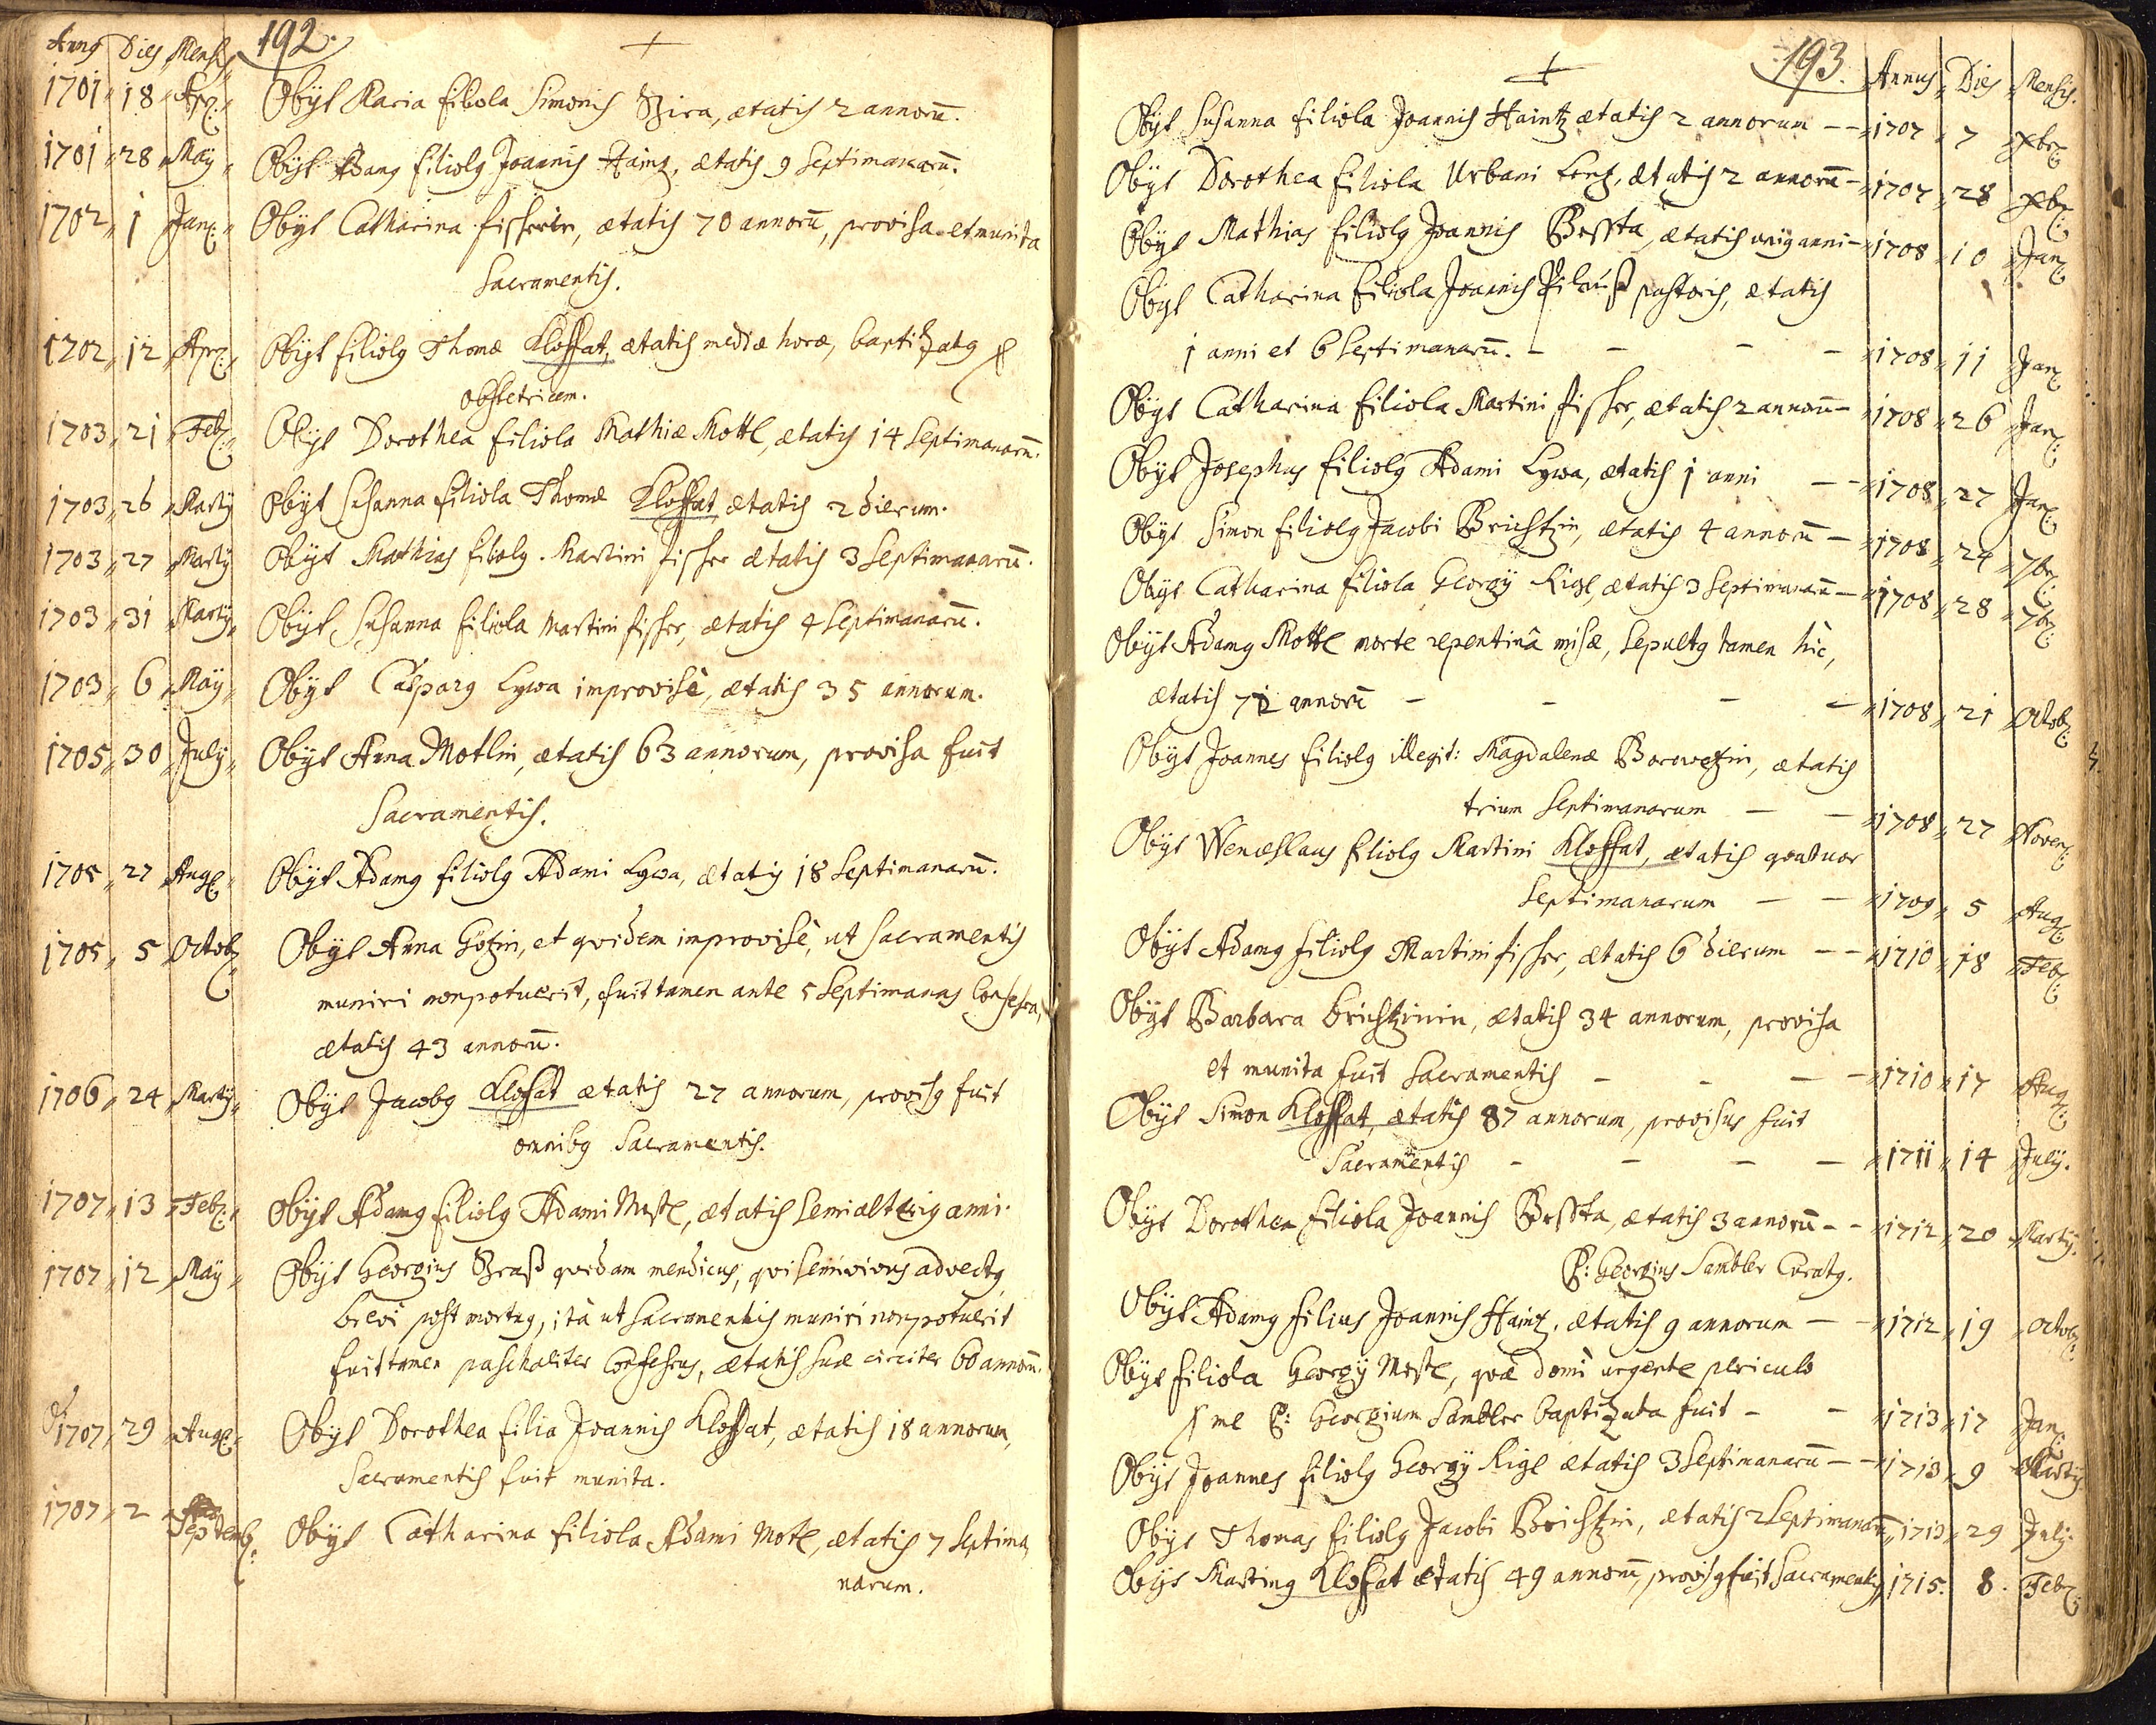 Anng Dies Mensis 192.
1701 18 Apr: Obijt Maria filiola Simonis Szira, ætatis 2 annorū.
1701 28 May Obijt Adamg filiolg Joannis Hainz, ætatis 9 Septimanarū.
1702 1 Jan: Obijt Catharina fisserin, ætatis 70 annorū, provisa et munita
Sacramentis.
1702 12 Apr: Obijt filiolg Thomæ Kloffat, ætatis mediæ horæ, baptizatg p
obstetricem.
1703 21 Feb: Obijt Dorothea filiola Mathiæ Mottl, ætatis 14 Septimanarū.
1703 26 Martij Obijt Susanna filiola Thomæ Kloffat ætatis 2 dierum.
1703 27 Martij Obijt Mathias filiolg Martini fisser ætatis 3 Septimanarū.
1703 31 Martij Obijt Susanna filiola Martini fisser, ætatis 4 Septimanarū.
1703 6 May Obijt Casparg Lywa improvisè, ætatis 35 annorum.
1705 30 July Obijt Anna Motlin, ætatis 63 annorum, provisa fuit
Sacramentis.
1705 27 Aug: Obijt Adamg filiolg Adami Lywa, ætatis 18 Septimanarū.
1705 5 Octob: Obijt Anna Götzin, et quidem improvisè, ut Sacramentis
muniri non potuerit, fuit tamen ante 5 Septimanas Confessa,
ætatis 43 annorū.
1706 24 Martij Obijt Jacobg Kloffat ætatis 27 annorum, provisg fuit
omnibg Sacramentis.
1707 13 Feb: Obijt Adamg filiolg Adami Motl, ætatis Semialterig anni.
1707 12 May Obijt Georgius Braß quidam mendicus, qui semivivus advectg
brevi post mortug, ità ut Sacramentis muniri non potuerit
fuit tamen paschaliter Confessus, ætatis suæ circiter 60 annorū.
1707 29 Aug: Obijt Dorothea filia Joannis Kloffat, ætatis 18 annorum,
Sacramentis fuit munita.
1707 2 Septemb: Obijt Catharina filiola Adami Motl, ætatis 7 Septima
narum.
193. Annus Dies Mensis.
Obijt Susanna filiola Joannis Haintz ætatis 2 annorum 1707 7 Xbr:
Obijt Dorothea filiola Urbani Lontz, ætatis 2 annorū 1707 28 Xbr:
Obijt Mathias filiolg Joannis Bossta, ætatis unig anni 1708 10 Jan:
Obijt Catharina filiola Joannis Pilauß pastoris, ætatis
1 anni et 6 Septimanarū. 1708 11 Jan:
Obijt Catharina filiola Martini fisser, ætatis 2 annorū 1708 26 Jan:
Obijt Josephus filiolg Adami Lywa, ætatis 1 anni 1708 27 Jan:
Obijt Simon filiolg Jacobi Brichtzin, ætatis 4 annorū 1708 24 7br:
Obijt Catharina filiola Georgij Rigl, ætatis 3 Septimanarū 1708 28 7br:
Obijt Adamg Mottl morte repentinâ misæ, Sepultg tamen hîc,
ætatis 72 annorū 1708 21 Octob:
Obijt Joannes filiolg illegit: Magdalenæ Borowetzin, ætatis
trium Septimanarum 1708 27 Novem:
Obijt Wenceslaus filiolg Martini Kloffat, ætatis quatuor
Septimanarum 1709 5 Aug:
Obijt Adamg filiolg Martini fisser, ætatis 6 dierum 1710 18 Feb:
Obijt Barbara Brichtzinin, ætatis 34 annorum, provisa
et munita fuit Sacramentis 1710 17 Aug:
Obijt Simon Kloffat, ætatis 87 annorum, provisus fuit
Sacramentis 1711 14 July.
Obijt Dorothea filiola Joannis Bossta, ætatis 3 annorū 1712 20 Martij.
P: Georgius Sambler Curatg.
Obijt Adamg filius Joannis Haintz, ætatis 9 annorum 1712 19 Octob:
Obijt filiola Georgij Motl, quæ domi urgente periculo
p me P: Georgium Sambler baptizata fuit 1713 17 Jan:
Obijt Joannes filiolg Georgij Rigl ætatis 3 Septimanarū 1713 9 Martij
Obijt Thomas filiolg Jacobi Brichtzin, ætatis 2 Septimanarū 1713 29 July
Obijt Marting Kloffat ætatis 49 annorū, provisg fuit Sacramentis 1715. 8. Feb: